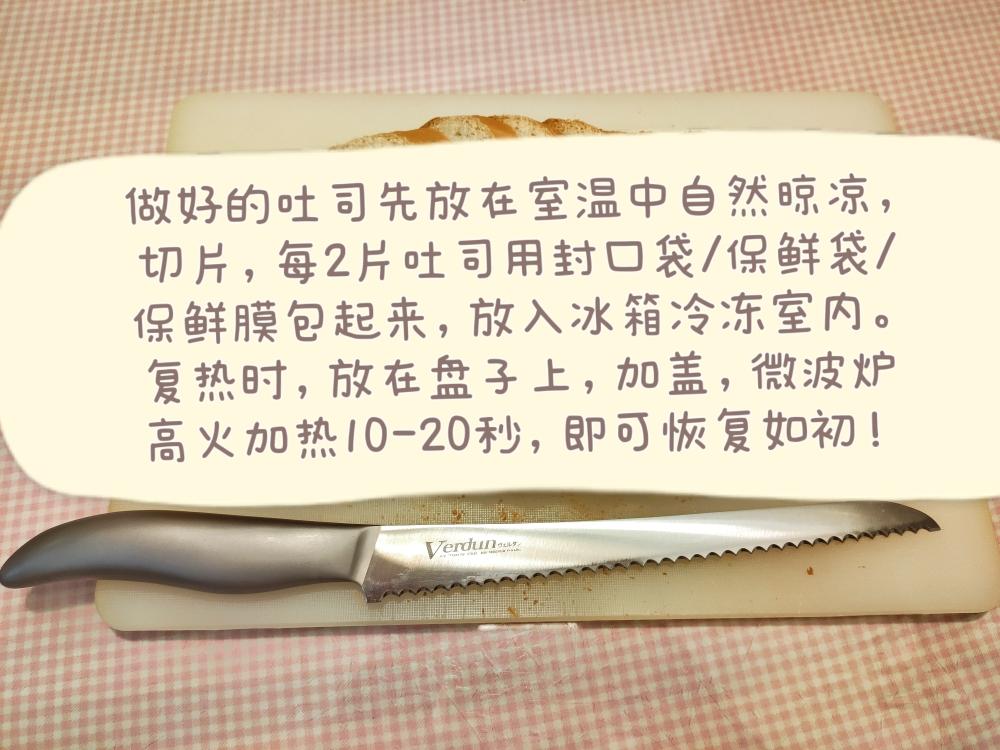 做好的吐司先放在室温中自然晾凉，
切片，每2片吐司用封口袋/保鲜袋/
保鲜膜包起来，放入冰箱冷冻室内。
复热时，放在盘子上，加盖，微波炉
高火加热10-20秒，即可恢复如初！
Verdun ヴェルダン